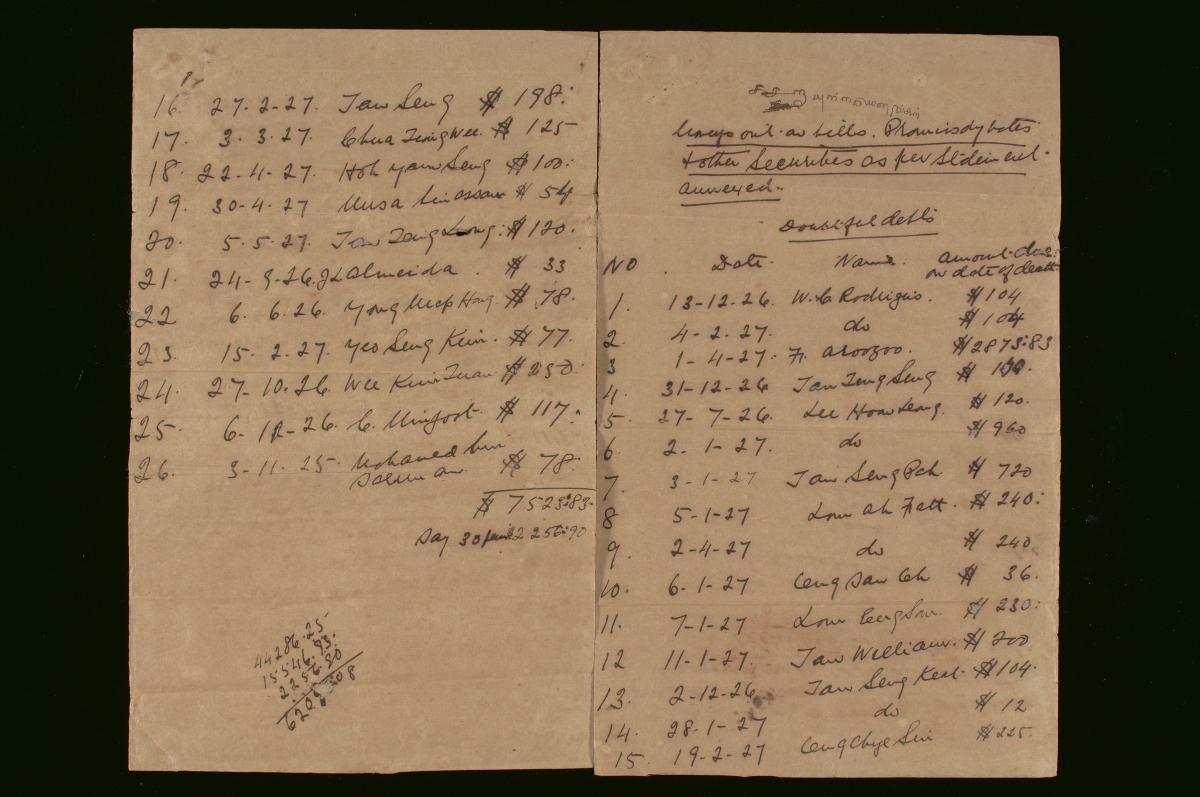 Moneys out on bills. Promissory notes
& other Securities as per Statement
annexed..
Doubtful debts
NO . Date. Name. amount due:
on date of death
1. 13-12-26. W. C Rodrigues. $104
2. 4-2-27. do $104
3 1-4-27. F. aroozoo. $2873.83
4. 31-12-26 Tan Teng Seng $
5. 27-7-26. Lee Hoon Leong. $120.
6 2-1-27. do $960
7. 3-1-27 Tan Seng Poh $720
8 5-1-27 Low Ah Fatt. $240:
9. 2-4-27 do $240
10. 6-1-27 Ceng San Ch $36.
11. 7-1-27 Low Ceng Son $230:
12 11-1-27. Tan William. $200
13. 2-12-26. Tan Seng Keat. $104.
14. 28-1-27 do $12
15. 19-2-27 Ceng Chye Sin $225
16. 27-2-27. Tan Seng $198:
17. 3.3.27. Chua Tiong Wee. $125
18. 22-4-27. Hoh Yam Seng $100:
19. 30-4-27 Musa bin assan $54
20. 5.5.27. Tan Teng : $120.
21. 24-9-26. J L Almeida . $33
22 6. 6.26. Yong Hong $78.
23. 15. 2.27. Yeo Seng Kim. $77.
24. 27-10.26. Wee Kim Tuan $250:
25. 6-12-26. C. Minjoot. $117.
26. 3-11.25. Mohamed bin
Salim an $78.
$7523.83.
Say 30 $2256.90
44286.25
15546.93.
2256.90